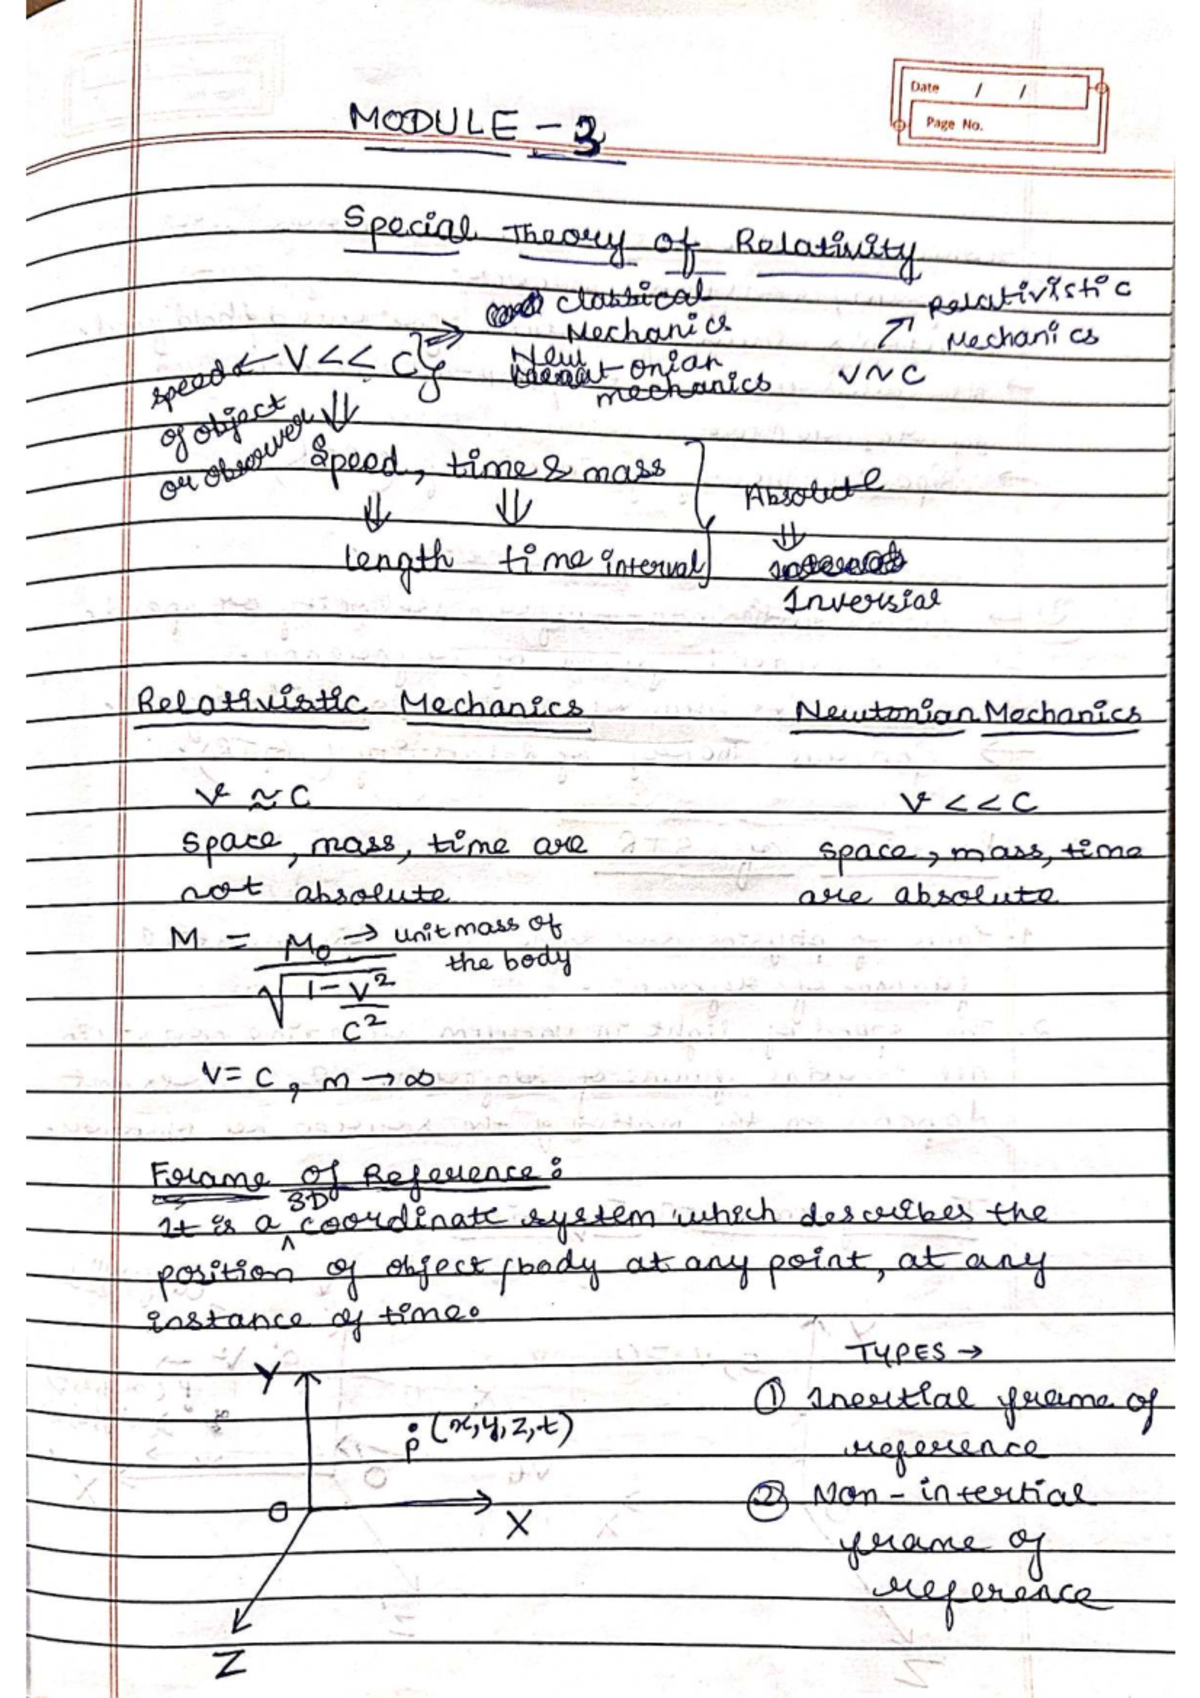 Date / /
Page No.
MODULE - 3
Special Theory of Relativity
classical
Mechanics
Relativistic
Mechanics
speed ← V << C} ⇒
Newtonian
mechanics
V ~ C
of object
or observer
Speed, time & mass
Absolute
length time interval
Inversial
Relativistic Mechanics Newtonian Mechanics
v ≈ C v << C
space, mass, time are space, mass, time
not absolute are absolute
M = M₀ → unit mass of
the body
√1 - V²
C²
V = C, m → ∞
Frame of Reference:
3D
It is a ^ coordinate system which describes the
position of object/body at any point, at any
instance of time.
TYPES →
Y
① Inertial frame of
reference
P (x, y, z, t)
② Non - intertial
frame of
reference
O
X
Z